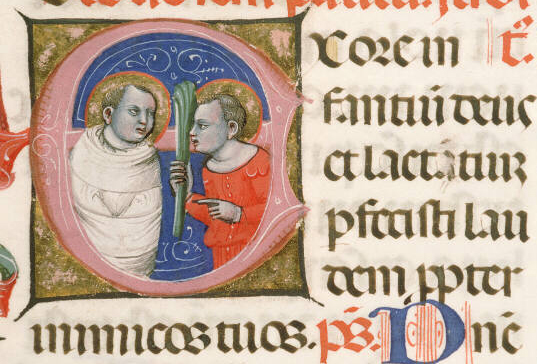 x ore in
fantiu deus
et lactatiuz
pfecisti lau
dem ppter
inimicos tuos. ps. Dne